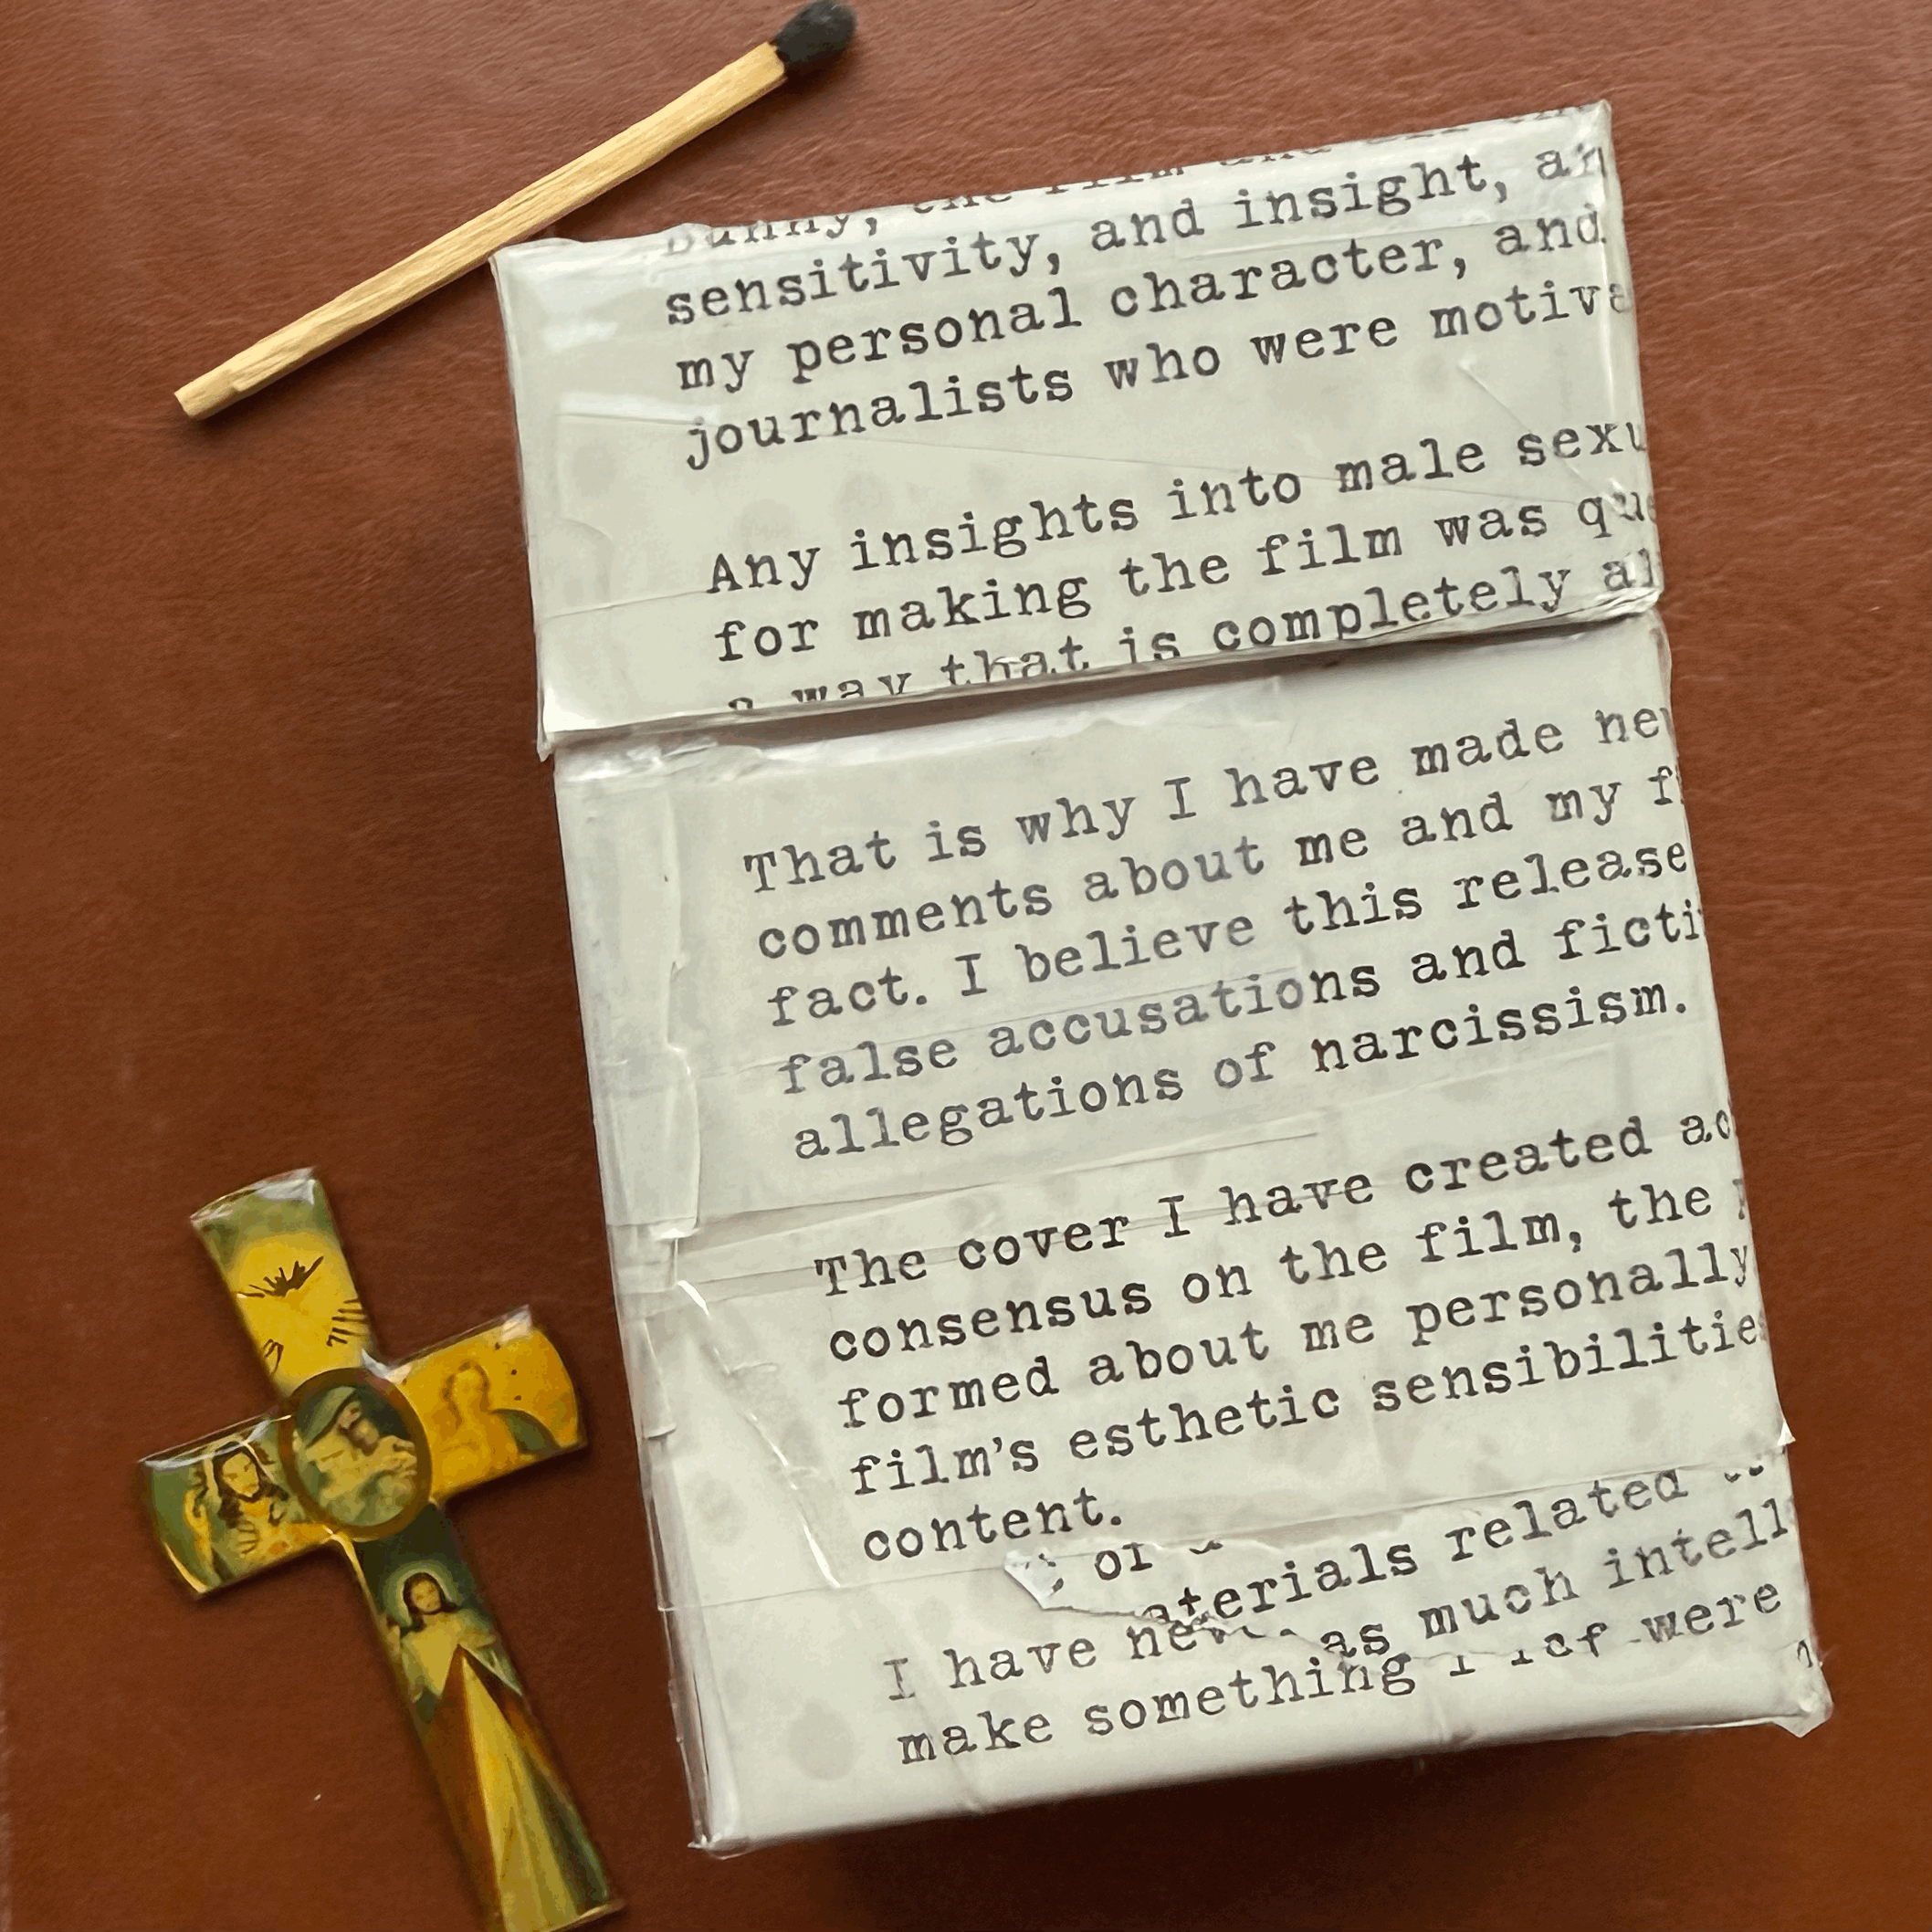 sensitivity, and insight, an
my personal character, and
journalists who were motiva
Any insights into male sexu
for making the film was que
a way that is completely al
That is why I have made ne
comments about me and my f
fact. I believe this release
false accusations and ficti
allegations of narcissism.
The cover I have created ac
consensus on the film, the
formed about me personally
film's esthetic sensibilitie
content.
aterials related
as much intell
I have ne
were
make something